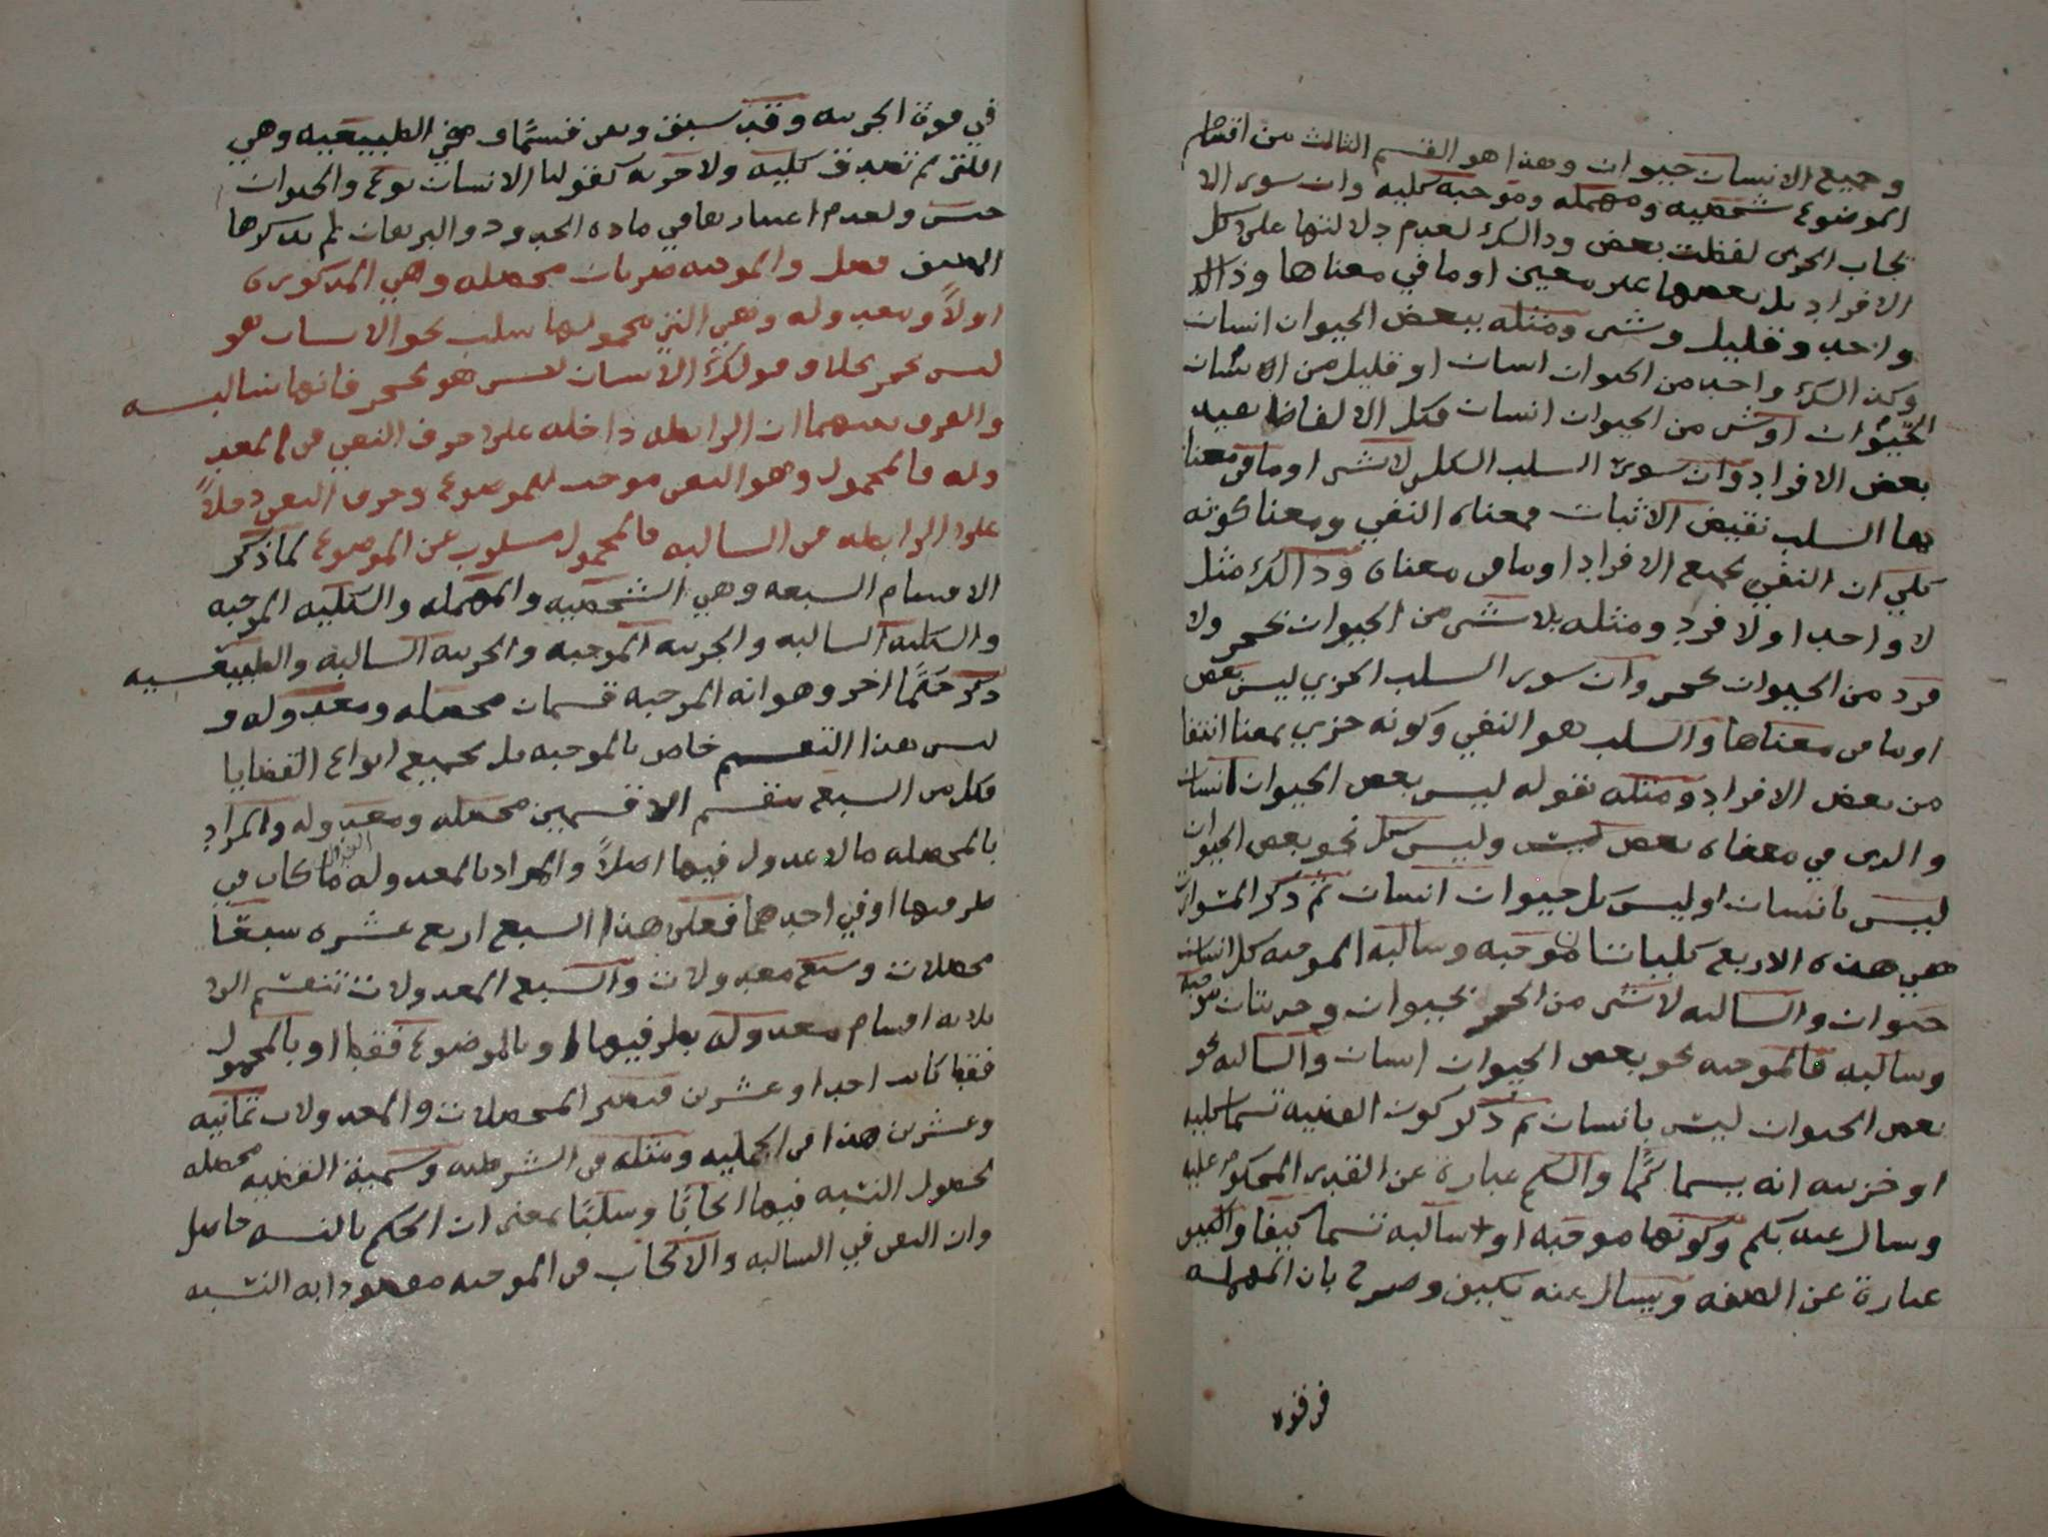 وجميع الانسان حيوان وهذا هو القسم الثالث من اقسام
الموضوع شخصيه ومهمله وموجبه كليه وان سور الا
يجاب الجزى لفظت بعض وذالك لعدم دلالتها على كل
الافراد بل بعضها غير معين او ما في معناها وذالك
واحد وقليل وشى ومثله ببعض الحيوان انسان
وكذالك واحد من الحيوان انسان او قليل من الانسان
الحيوان اوشى من الحيوان انسان فكل الالفاظ بعيد
بعض الافراد وان سور السلب الكلى لاشى او ما في معنا
ها السلب نقيض الاثبات فمعناه النفي ومعنا كونه
كلي ان النفي بجميع الافراد او ما في معناه وذالك مثل
لا واحد او لا فرد ومثله بلا شى من الحيوان بحجر ولا
فرد من الحيوان بحجر وان سور السلب الجزي ليس بعض
او ما في معناها والسلب هو النفي وكونه جزي بمعنا انتفا
من بعض الافراد ومثله بقوله ليس بعض الحيوان انسان
والذى في معناه بعض ليس وليس كل نحو بعض الحيوان
ليس بانسان او ليس كل حيوان انسان ثم ذكر المسورات
هي هذه الاربع كليات موجبه وسالبه الموجبه كل انسان
حيوان والسالبه لاشى من الحجر بحيوان وجزيتان موجبه
وسالبه فالموجبه نحو بعض الحيوان انسان والسالبه نحو
بعض الحيوان ليس بانسان ثم ذكر كون القضيه تسما كليه
او جزييه انه يسما كمًا والكم عبارة عن القدر المحكوم عليه
وسال عنه بكم وكونها موجبه او سالبه تسما كيفا والكيف
عبارة عن الصفه ويسال عنه بكيف وصرح بان المهمله
في قوه
في قوة الجزييه وقد سبق وبقى قسمًا وهي الطبيعيه وهي
اللتى لم تصدق كليه ولا جزيه كقولنا الانسان نوع والحيوان
جنس ولعدم اعتبارها في مادة الحدود والبرهان لم يذكرها
المصنف فصل والموجبه ضربان محصله وهي المذكوره
اولاً ومعدوله وهي التى محمولها سلب نحو الانسان هو
ليس بحجر بخلاف قولك الانسان ليس هو بحجر فانها سالبه
والفرق بينهما ان الرابطه داخله على حرف النفي في المعد
وله فالمحمول وهو النفى موجب للموضوع وحرف النفى دخلاً
على الرابطه في السالبه فالمحمول مسلوب عن الموضوع لما ذكر
الاقسام السبعه وهي الشخصيه والمهمله والكليه الموجبه
والكليه السالبه والجزييه الموجبه والجزييه السالبه والطبيعيه
ذكر حكمًا اخر وهو انه الموجبه قسمان محصله ومعدوله و
ليس هذا التقسيم خاص بالموجبه بل بجميع انواع القضايا
فكل من السبع ينقسم الا قسمين محصله ومعدوله والمراد
بالمحصله ما لا عدول فيها اصلاً والمراد بالمعدوله ما كان في
طرفيها او في احدهما فعلى هذا السبع اربع عشره سبعًا
محصلات وسبع معدولات والسبع المعدولات تنقسم الى
ثلاثه اقسام معدوله بطرفيها او بالموضوع فقط او بالمحمول
فقط كانت احدا وعشرين فتصير المحصلات والمعدولات ثمانيه
وعشرين هذا في الحمليه ومثله في الشرطيه وتسمية القضيه محصله
لحصول النسبه فيها ايجابًا وسلبًا بمعنى ان الحكم بالنسبه حاصل
وان النفى في السالبه والايجاب في الموجبه مقصود ابه النسبه